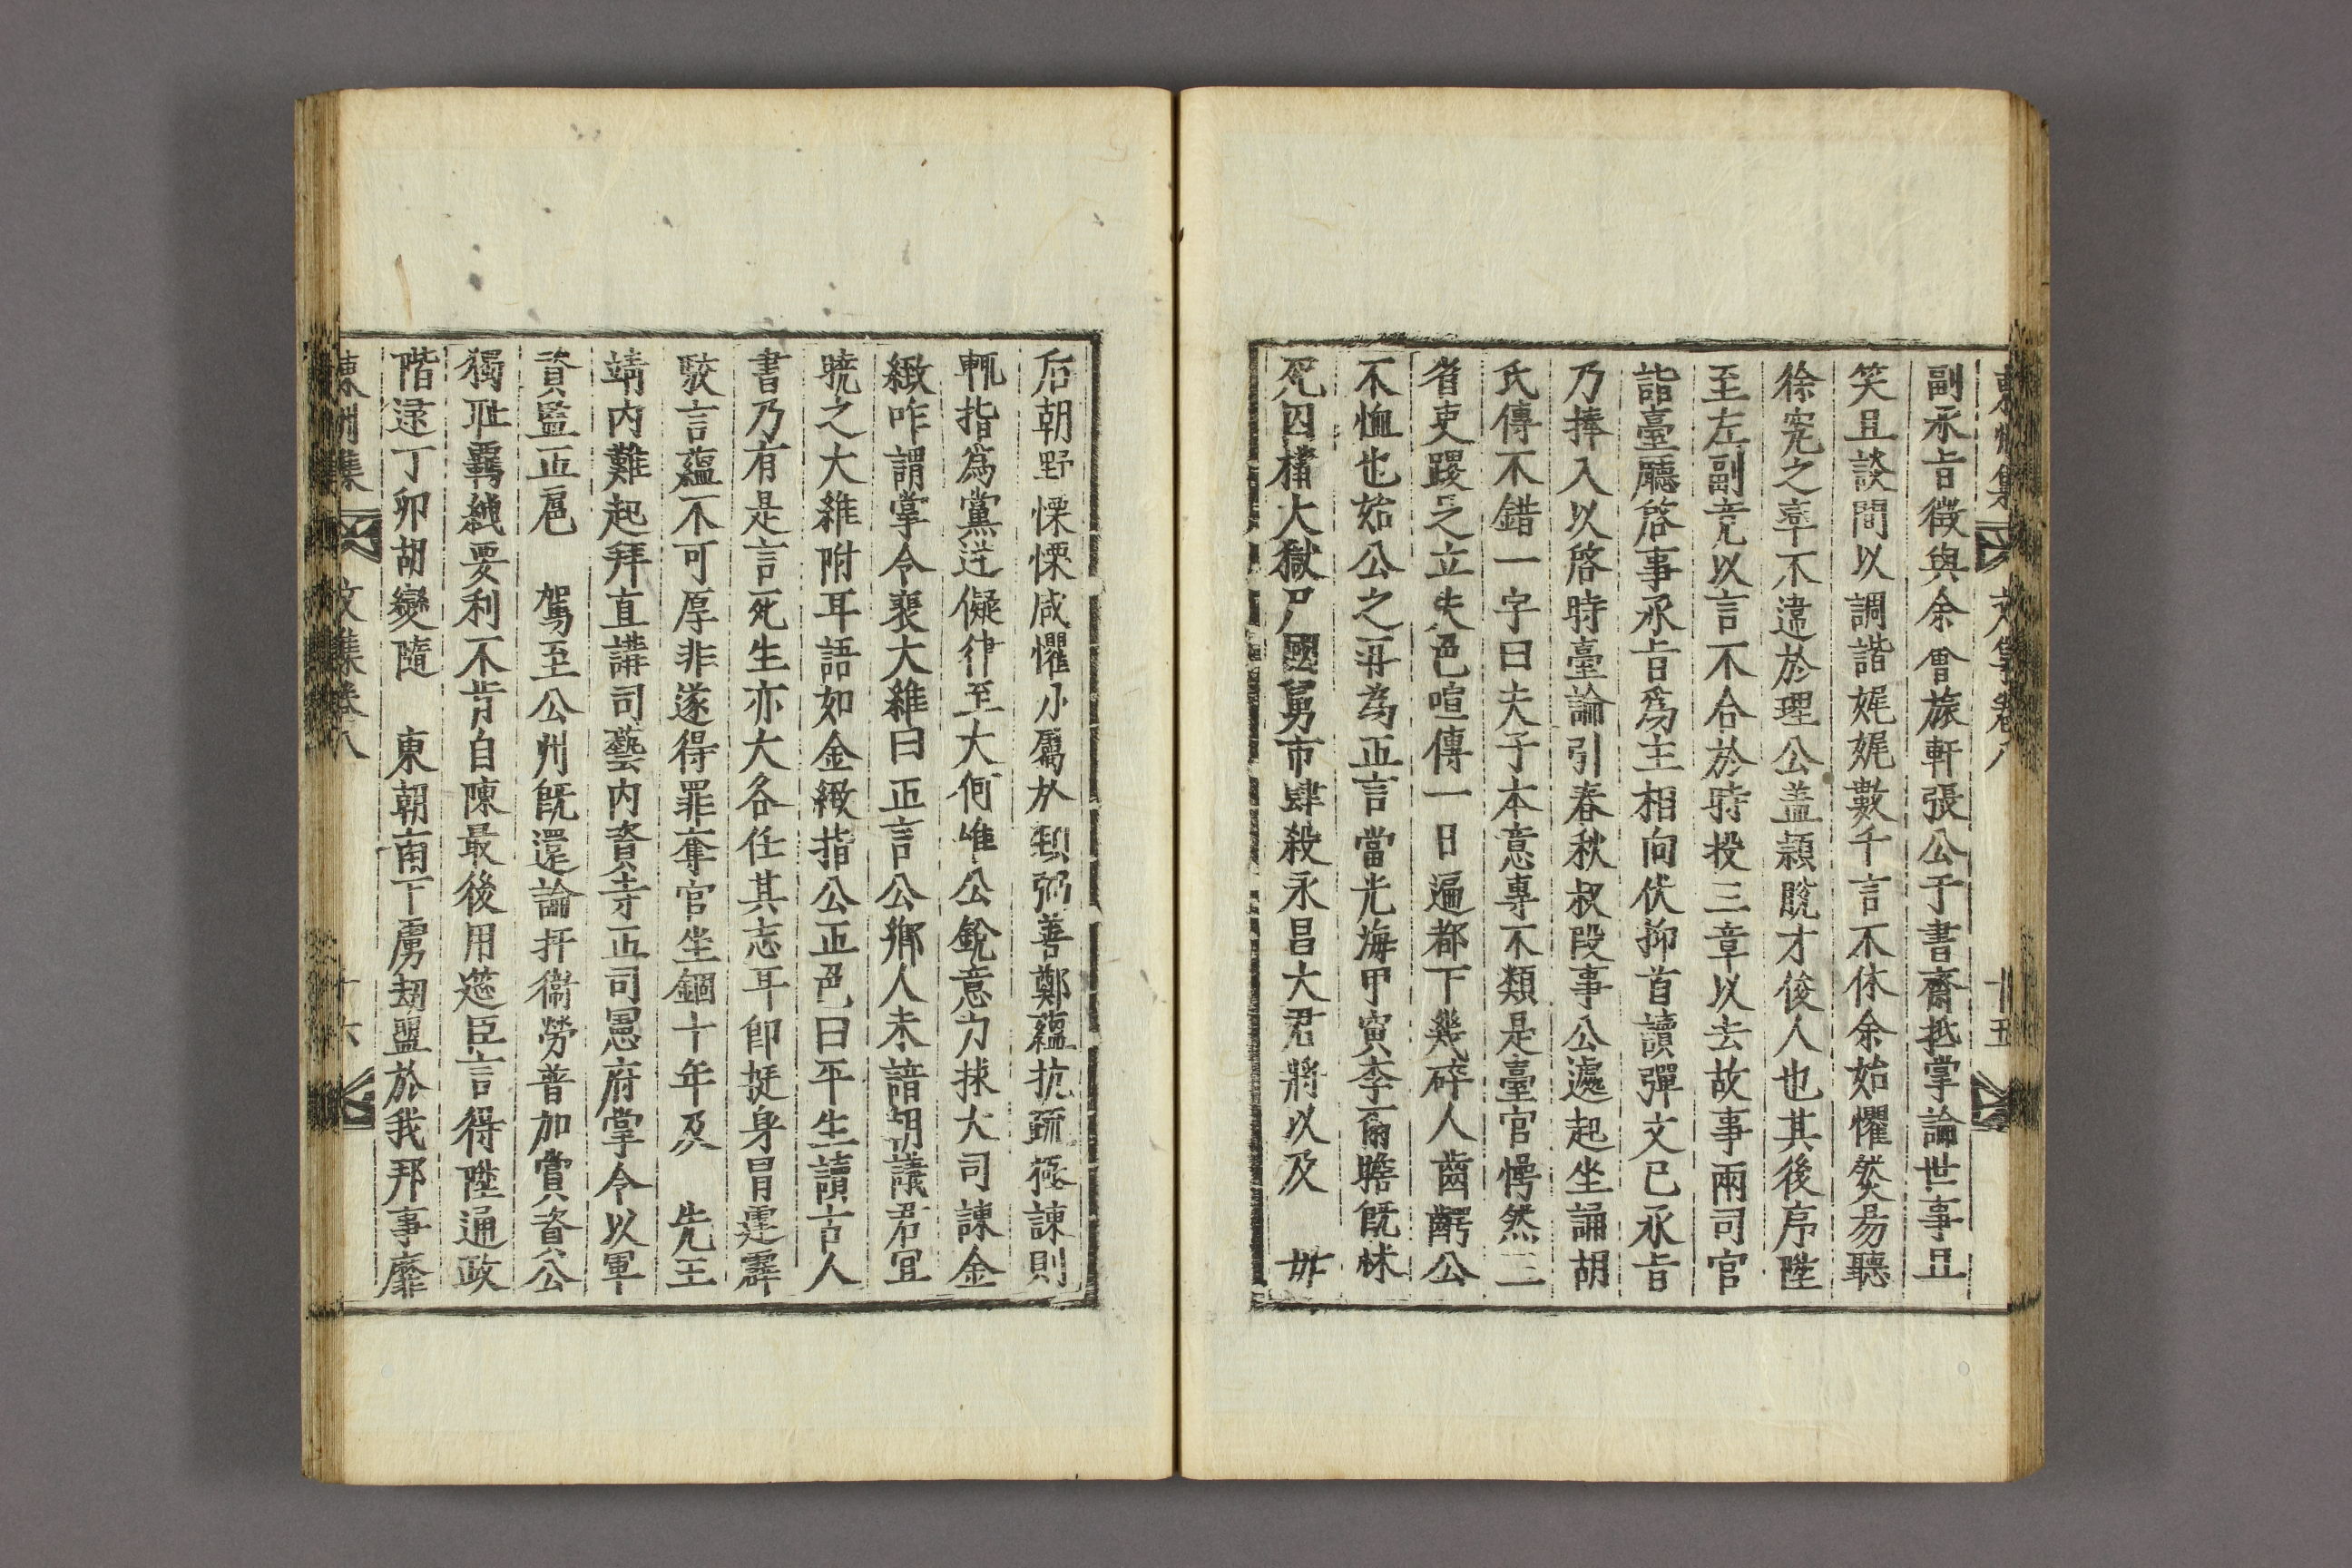 東州集 文集卷八 十五
副承旨徵與余會旅軒張公于書齋抵掌論世事且
笑且談間以調諧娓娓數千言不休余始懼焂易聽
徐究之率不違於理公盖穎脫才俊人也其後序陞
至左副竟以言不合於時投三章以去故事兩司官
詣臺廳啓事承旨爲主相向伏抑首讀彈文已承旨
乃捧入以啓時臺論引春秋叔段事公遽起坐誦胡
氏傳不錯一字曰夫子本意專不類是臺官愕然三
省吏躩足立失色喧傳一日遍都下幾碎人齒齶公
不恤也始公之再為正言當光海甲寅李爾瞻旣怵
死囚構大獄尸國舅市肆殺永昌大君將以及 毋
后朝野慄慄咸懼小厲於顙弼善鄭蘊抗疏極諫則
輒指爲黨逆儗律至大何唯公銳意力捄大司諫金
緻咋謂掌令裵大維曰正言公鄕人未諳朝議君宜
曉之大維附耳語如金緻指公正色曰平生讀古人
書乃有是言死生亦大各任其志耳卽挺身冒霆霹
駁言蘊不可厚非遂得罪奪官坐錮十年及 先王
靖內難起拜直講司藝內資寺正司憲府掌令以軍
資監正扈 駕至公州旣還論扞衞勞普加賞資公
獨耻覊紲要利不肯自陳最後用筵臣言得陞通政
階逮丁卯胡變隨 東朝南下虜刼盟於我邦事靡
東州集 文集卷八 十六